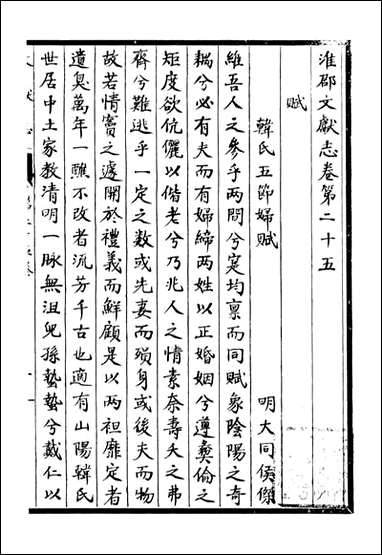 淮郡文獻志卷第二十五
賦
韓氏五節婦賦
明大同侯傑
維吾人之參乎两間兮寔均禀而同賦象陰陽之奇
耦兮必有夫而有婦締两姓以正婚姻兮遵彛倫之
矩度欲伉儷以偕老兮乃兆人之情素奈壽夭之弗
齊兮難逃乎一定之数或先妻而殞身或後夫而物
故若情竇之遽開於禮義而鮮顧是以两袒靡定者
遺臭萬年一醮不改者流芳千古也適有山陽韓氏
世居中土家教清明一脉無沮兒孫蟄蟄兮戴仁以